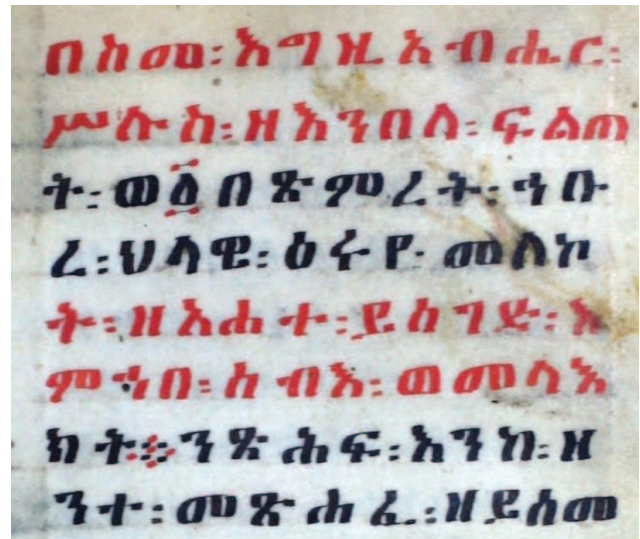 በስመ፡እግዚአብሔር፡
ሥሉስ፡ዘእንበለ፡ፍልጠ
ት፡ወ፩በጽምረት፡ኀቡ
ረ፡ህላዌ፡ዕሩየ፡መለኮ
ት፡ዘአሐተ፡ይሰገድ፡እ
ምኀበ፡ሰብእ፡ወመላእ
ክት፨ንጽሕፍ፡እንከ፡ዘ
ንተ፡መጽሐፈ፡ዘይሰመ